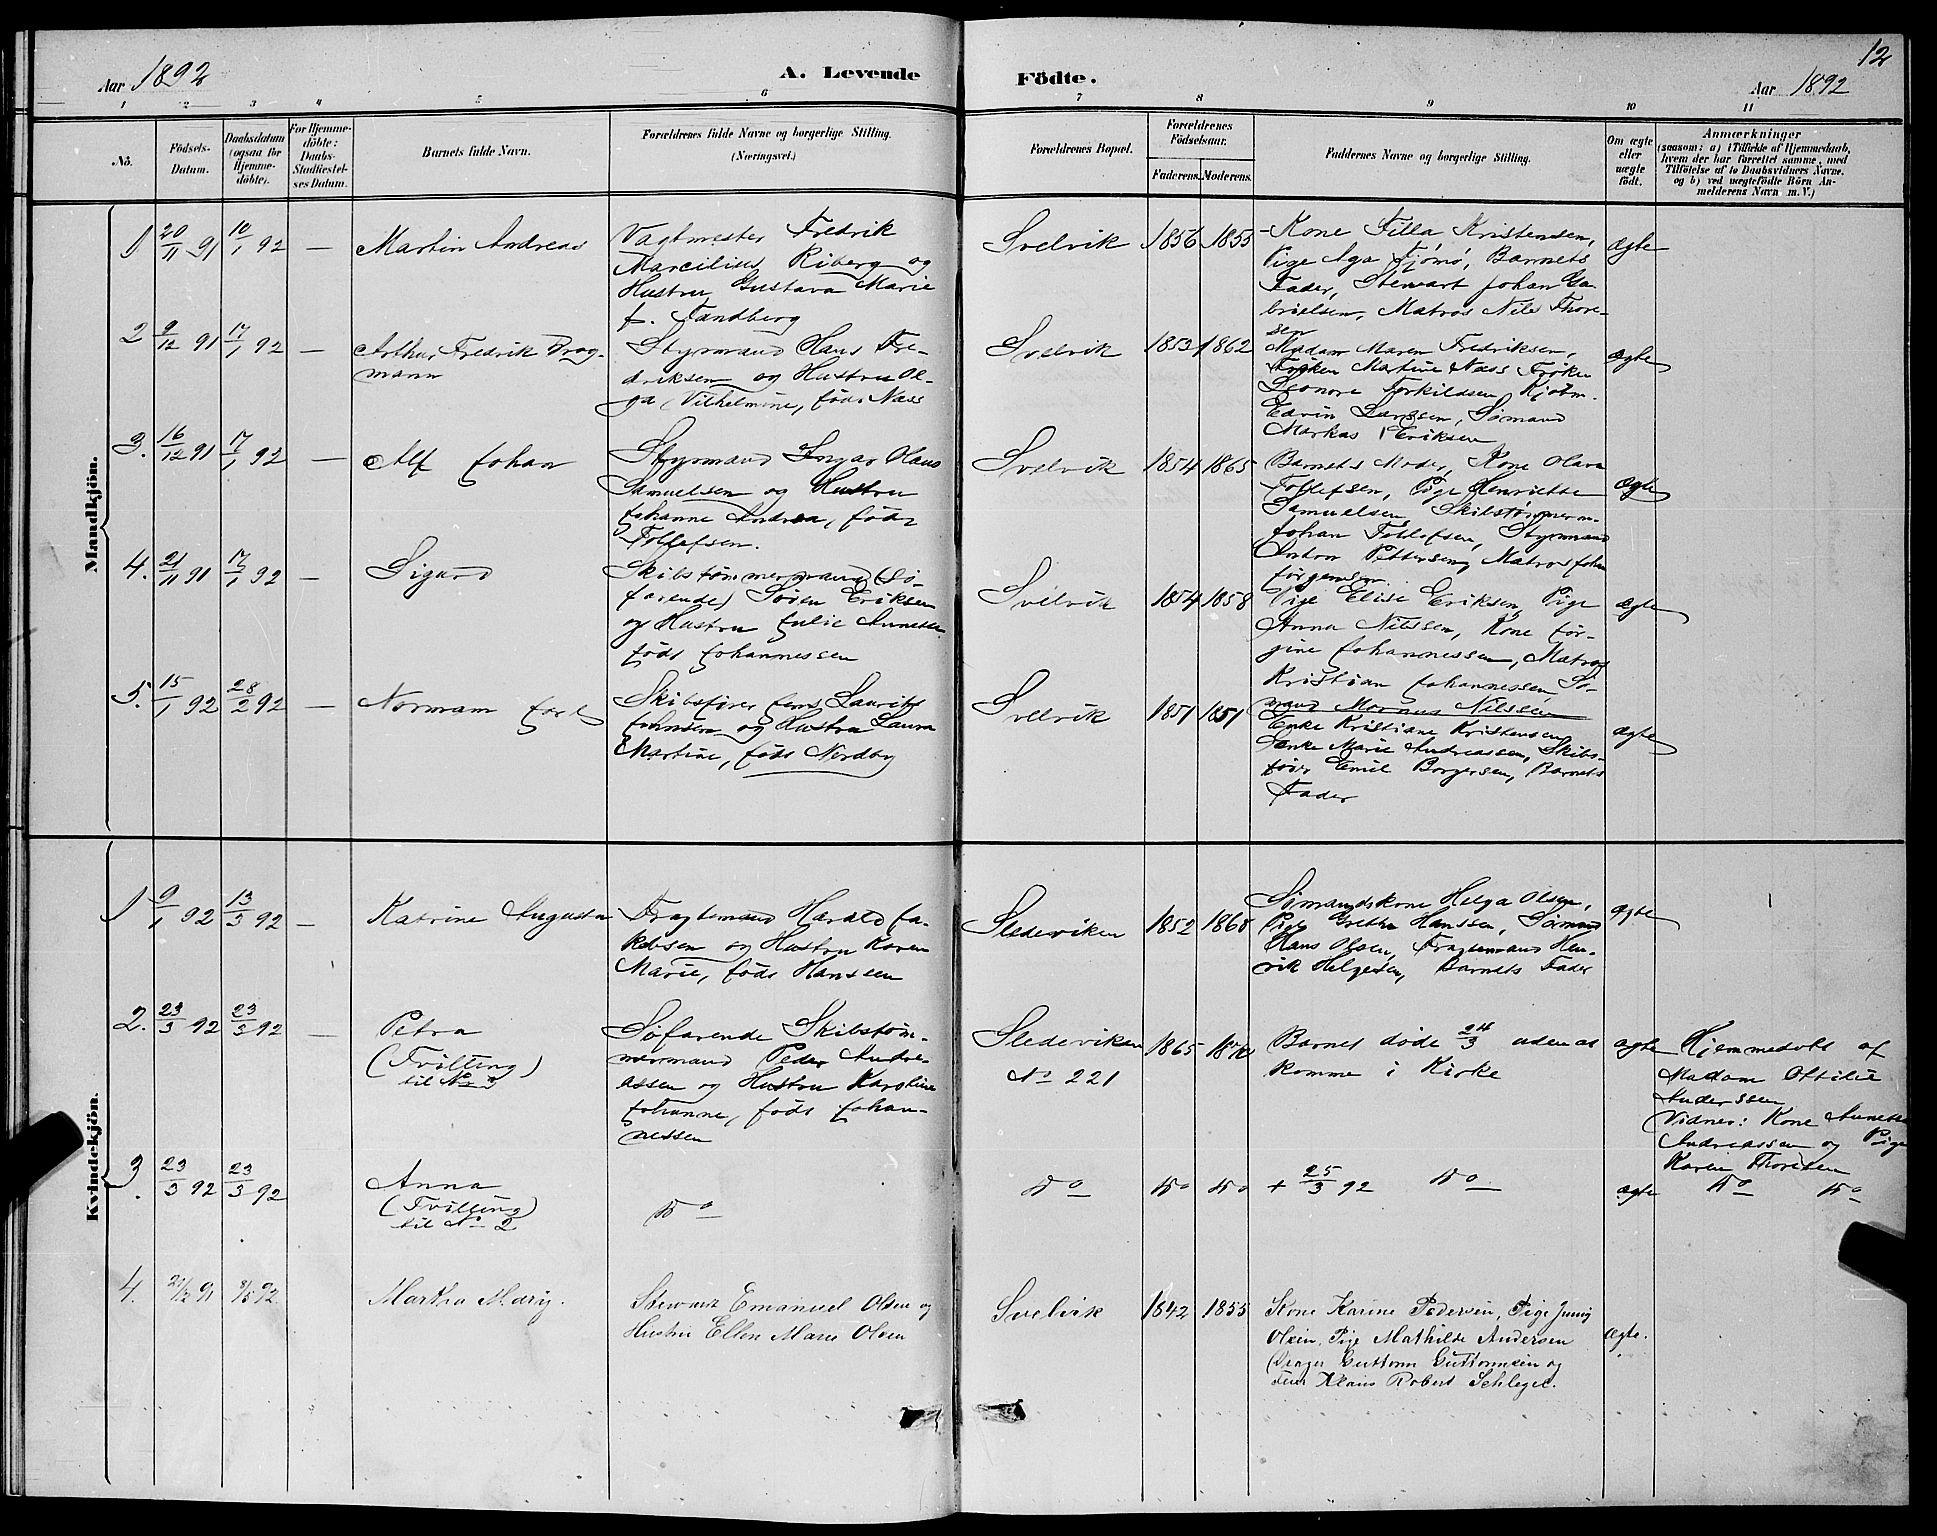 12
Aar 1892
A. Levende Födte.
Aar 1892
1 2 3 4 5 6 7 8 9 10 11
No.
Födsels-Datum.
Daabsdatum (ogsaa for Hjemme-döbte).
For Hjemme-döbte: Daabs-Stadfæstel-ses Datum.
Barnets fulde Navn.
Forældrenes fulde Navne og borgerlige Stilling. (Næringsvei.)
Forældrenes Bopæl.
Forældrenes Födselsaar.
Faderens. Moderens.
Faddernes Navne og borgerlige Stilling.
Om ægte eller uægte födt.
Anmærkninger
(saasom: a) i Tilfælde af Hjemmedaab,
hvem der har forrettet samme, med
Tilföielse af to Daabsvidners Navne.
og b) ved uægtefödte Börn An-
melderens Navn m. V.)
Mandkjön.
1 20/11 91 10/1 92 — Martin Andreas
Vagtmester Fredrik
Marcilius Riberg og
Hustru Gustava Marie
f. Tandberg
Svelvik 1856 1855
Kone Tilla Kristensen,
Pige Aga Tjømø, Barnets
Fader, Stewart Johan Ga-
brielsen, Matros Nils Thore-
sen
ægte
2 9/12 91 17/1 92 — Arthur Fredrik Drag-
mann
Styrmand Hans Fre-
driksen og Hustru Ol-
ga Vilhelmine, født Næss
Svelvik 1853 1862
Madam Maren Fredriksen,
Frøken Martine Næss Frøken
Leonore Torkildsen Kjøbm.
Edvin Larssen, Sømand
Markus Eriksen
ægte
3. 16/12 91 17/1 92 — Alf Johan
Styrmand Ingar Olaus
Samuelsen og Hustru
Johanne Andrea, født
Tollefsen.
Svelvik 1854 1865
Barnets Moder, Kone Olava
Tollefsen, Pige Henriette
Samuelsen Skibstømmerm.
Johan Tollefsen, Styrmand
Anton Pettersen, Matros Johan
Jørgensen.
ægte
4. 21/11 91 17/1 92 — Sigurd
Skibstømmermand (Sø-
farende) Søren Eriksen
og Hustru Julie Annette
født Johannessen
Svelvik 1854 1858
Pige Elise Eriksen, Pige
Anna Nilssen, Kone Jør-
gine Johannessen, Matros
Kristian Johannessen, Sø-
mand Magnus Nilssen
ægte
5. 15/1 92 28/2 92 — Normann
Skibsfører Jens Lauritz
Johnsen og Hustru Laura
Martine, født Nordby
Svelvik 1851 1851
Enke Kristiane Kristensen
Enke Marie Andreassen, Skibs-
fører Emil Borgersen, Barnets
Fader
ægte
Kvindekjön.
1 9/1 92 13/3 92 — Katrine Augusta
Fragtemand Harald Ja-
kobsen og Hustru Karen
Marie, født Hanssen
Sledeviken 1852 1868
Sømandskone Helga Olsen,
Pige Grethe Hanssen, Sømand
Hans Olsen, Fragtemand Hen-
rik Helgesen, Barnets Fader
ægte
2. 23/3 92 23/3 92 — Petra
(Tvilling)
til No 3
Søfarende Skibstøm-
mermand Peder Andre-
assen og Hustru Karoline
Johanne, født Johan-
nessen
Sledeviken
No 221
1865 1872
Barnet døde 24/3 uden at
komme i Kirke
ægte
Hjemmedøbt af
Madam Ottilie
Anderssen
Vidner: Kone Annette
Andreassen og Pige
Karen Thoresen
3. 23/3 92 23/3 92 Anna
(Tvilling)
til No 2
Do
Do Do Do + 25/3 92 Do ægte Do Do
4. 21/12 91 8/5 92 Martha Mary.
Stewart Emanuel Olsen og
Hustru Ellen Marie Olsen
Svelvik 1842 1855
Kone Karine Pedersen, Pige Jenny
Olsen, Pige Mathilde Andersen
Guttorm Guttormsen og
Klaus Robert Schlegel.
ægte.